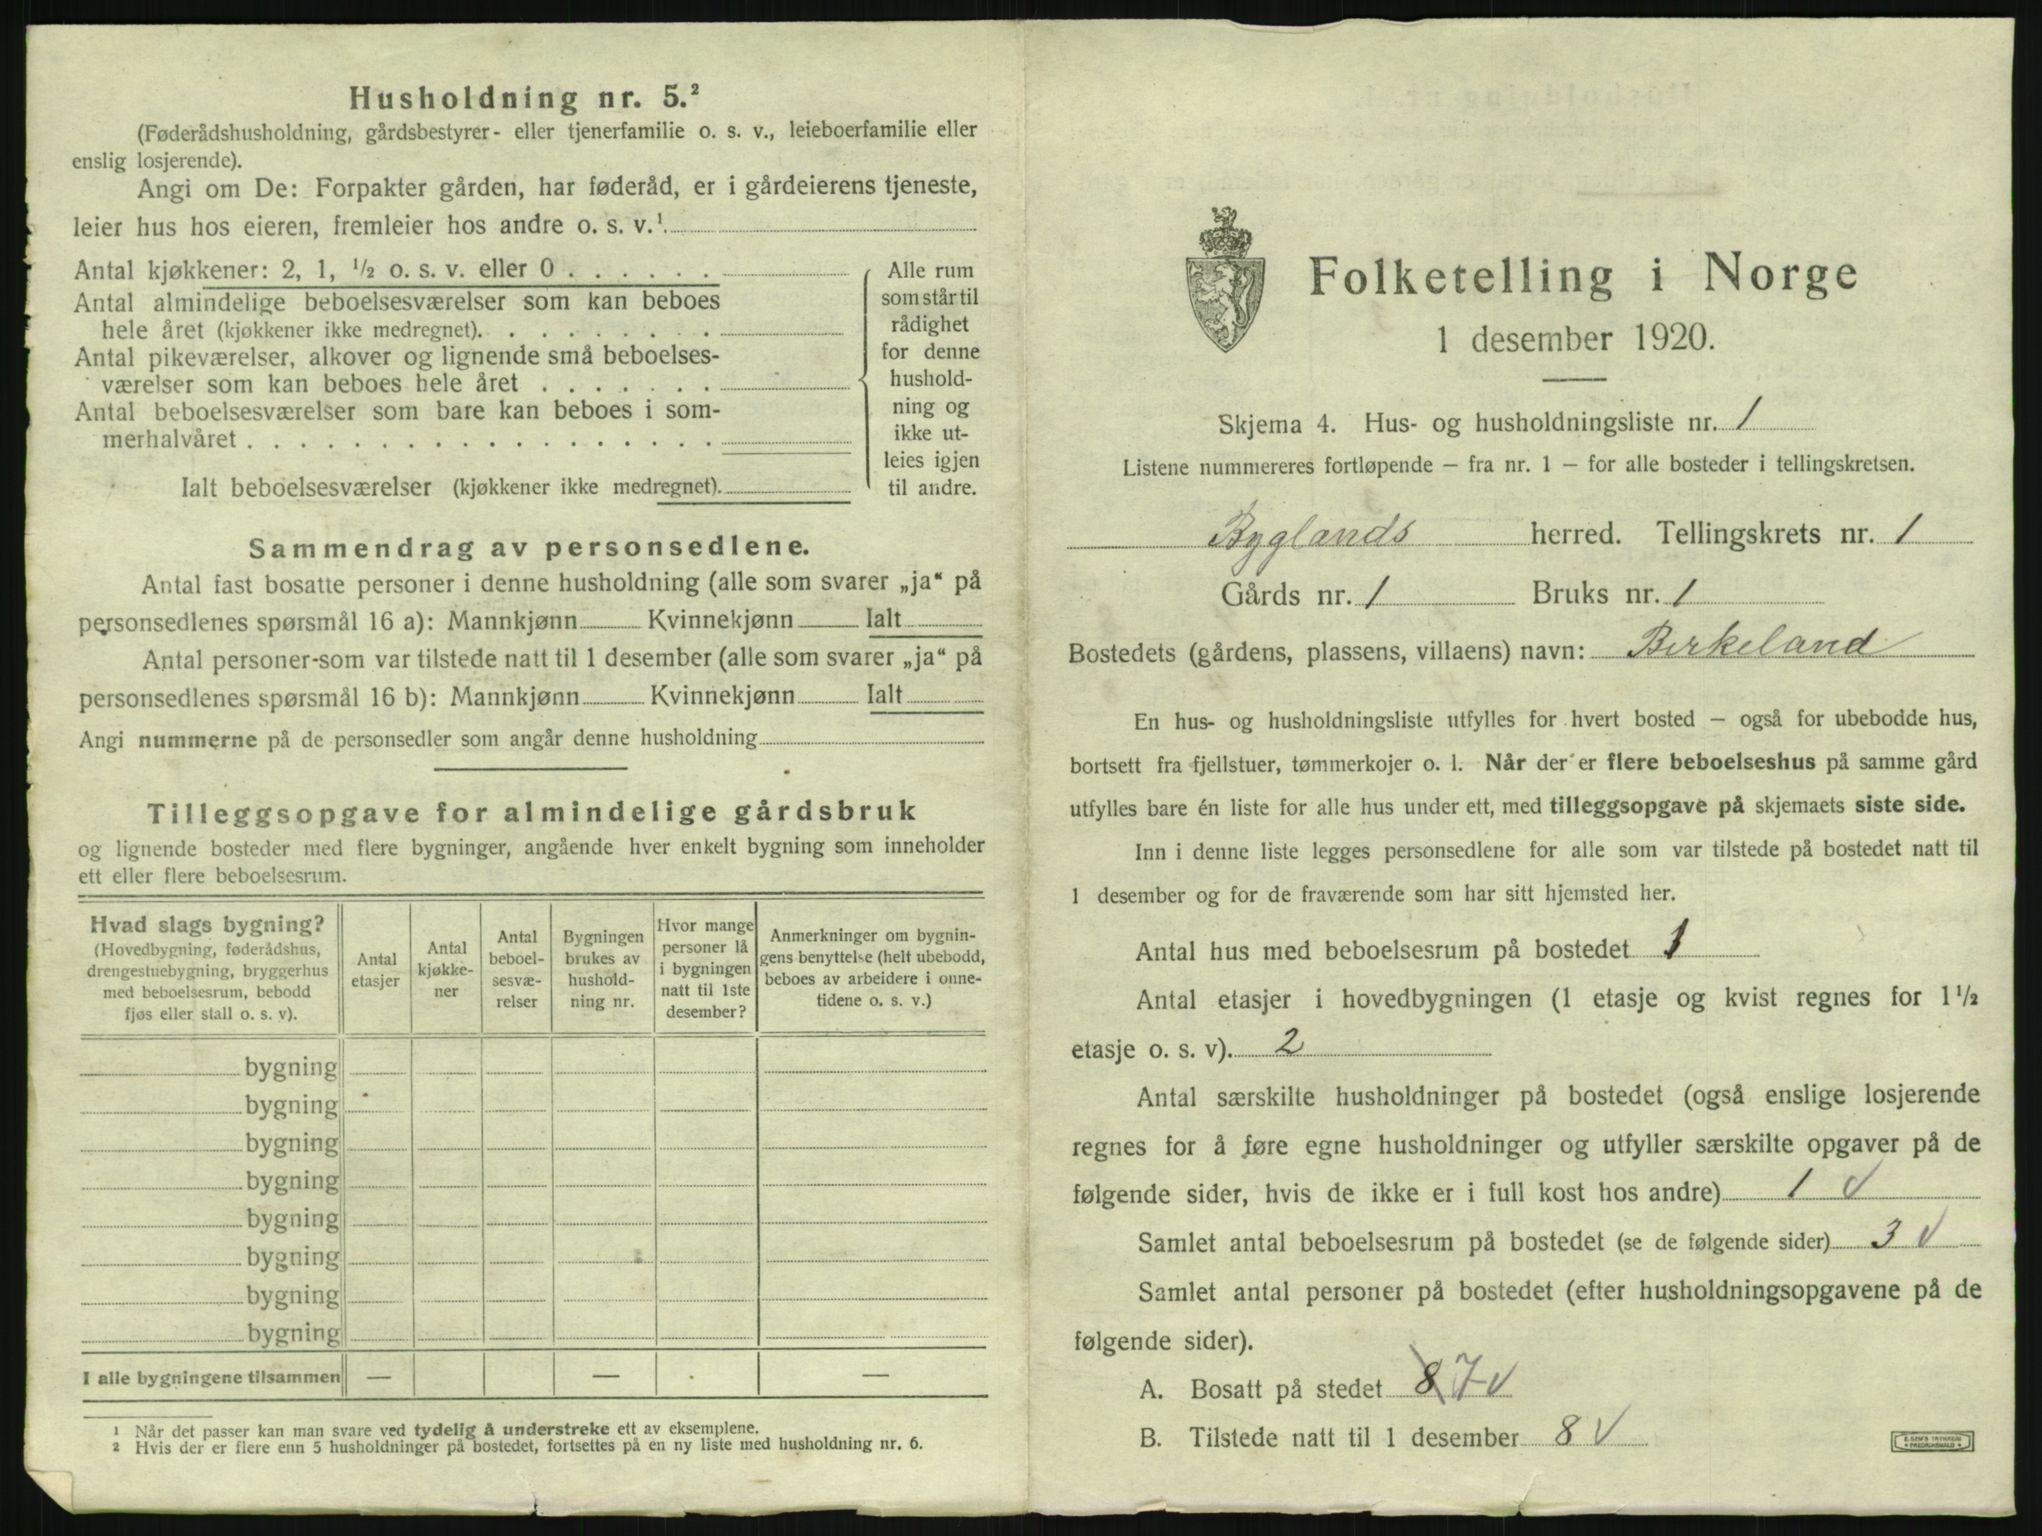 Husholdning nr. 5.²
(Føderådshusholdning, gårdsbestyrer- eller tjenerfamilie o. s. v., leieboerfamilie eller
enslig losjerende).
Angi om De: Forpakter gården, har føderåd, er i gårdeierens tjeneste,
leier hus hos eieren, fremleier hos andre o. s. v.¹
Antal kjøkkener: 2, 1, ½ o. s. v. eller 0 . . . . . .
Antal almindelige beboelsesværelser som kan beboes
hele året (kjøkkener ikke medregnet). . . . . . . . .
Antal pikeværelser, alkover og lignende små beboelses-
værelser som kan beboes hele året . . . . . . .
Antal beboelsesværelser som bare kan beboes i som-
merhalvåret . . . . . . . . . . . . . . . . . .
Ialt beboelsesværelser (kjøkkener ikke medregnet).
Alle rum
som står til
rådighet
for denne
hushold-
ning og
ikke ut-
leies igjen
til andre.
Sammendrag av personsedlene.
Antal fast bosatte personer i denne husholdning (alle som svarer „ja“ på
personsedlenes spørsmål 16 a): Mannkjønn Kvinnekjønn Ialt
Antal personer som var tilstede natt til 1 desember (alle som svarer „ja“ på
personsedlenes spørsmål 16 b): Mannkjønn Kvinnekjønn Ialt
Angi nummerne på de personsedler som angår denne husholdning
Tilleggsopgave for almindelige gårdsbruk
og lignende bosteder med flere bygninger, angående hver enkelt bygning som inneholder
ett eller flere beboelsesrum.
Hvad slags bygning?
(Hovedbygning, føderådshus,
drengestuebygning, bryggerhus
med beboelsesrum, bebodd
fjøs eller stall o. s. v).
Antal
etasjer
Antal
kjøkke-
ner
Antal
beboel-
sesvæ-
relser
Bygningen
brukes av
hushold-
ning nr.
Hvor mange
personer lå
i bygningen
natt til 1ste
desember?
Anmerkninger om bygnin-
gens benyttelse (helt ubebodd,
beboes av arbeidere i onne-
tidene o. s. v.)
bygning
bygning
bygning
bygning
bygning
bygning
bygning
bygning
I alle bygningene tilsammen — — —
¹ Når det passer kan man svare ved tydelig å understreke ett av eksemplene.
² Hvis der er flere enn 5 husholdninger på bostedet, fortsettes på en ny liste med husholdning nr. 6.
Folketelling i Norge
1 desember 1920.
Skjema 4. Hus- og husholdningsliste nr. 1
Listene nummereres fortløpende – fra nr. 1 – for alle bosteder i tellingskretsen.
Byglands herred. Tellingskrets nr. 1
Gårds nr. 1 Bruks nr. 1
Bostedets (gårdens, plassens, villaens) navn: Birkeland
En hus- og husholdningsliste utfylles for hvert bosted – også for ubebodde hus,
bortsett fra fjellstuer, tømmerkojer o. l. Når der er flere beboelseshus på samme gård
utfylles bare én liste for alle hus under ett, med tilleggsopgave på skjemaets siste side.
Inn i denne liste legges personsedlene for alle som var tilstede på bostedet natt til
1 desember og for de fraværende som har sitt hjemsted her.
Antal hus med beboelsesrum på bostedet 1
Antal etasjer i hovedbygningen (1 etasje og kvist regnes for 1½
etasje o. s. v). 2
Antal særskilte husholdninger på bostedet (også enslige losjerende
regnes for å føre egne husholdninger og utfyller særskilte opgaver på de
følgende sider, hvis de ikke er i full kost hos andre) 1 √
Samlet antal beboelsesrum på bostedet (se de følgende sider) 3 √
Samlet antal personer på bostedet (efter husholdningsopgavene på de
følgende sider).
A. Bosatt på stedet 8 7 √
B. Tilstede natt til 1 desember 8 √